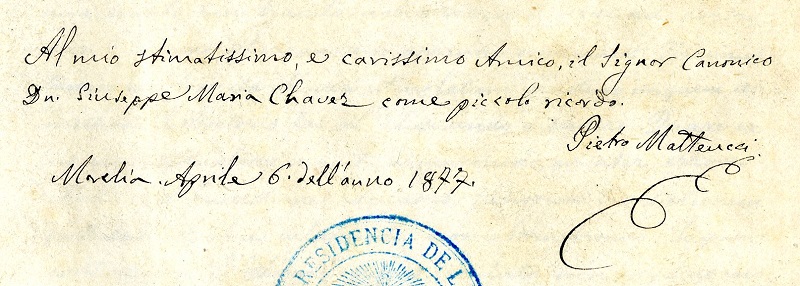 Al mio stimatissimo, e carissimo Amico, il Signor Canonico
Dn. Giuseppe Maria Chavez come piccolo ricordo.
Pietro Matteucci.
Morelia. Aprile 6. dell'anno 1877.
RESIDENCIA DE L